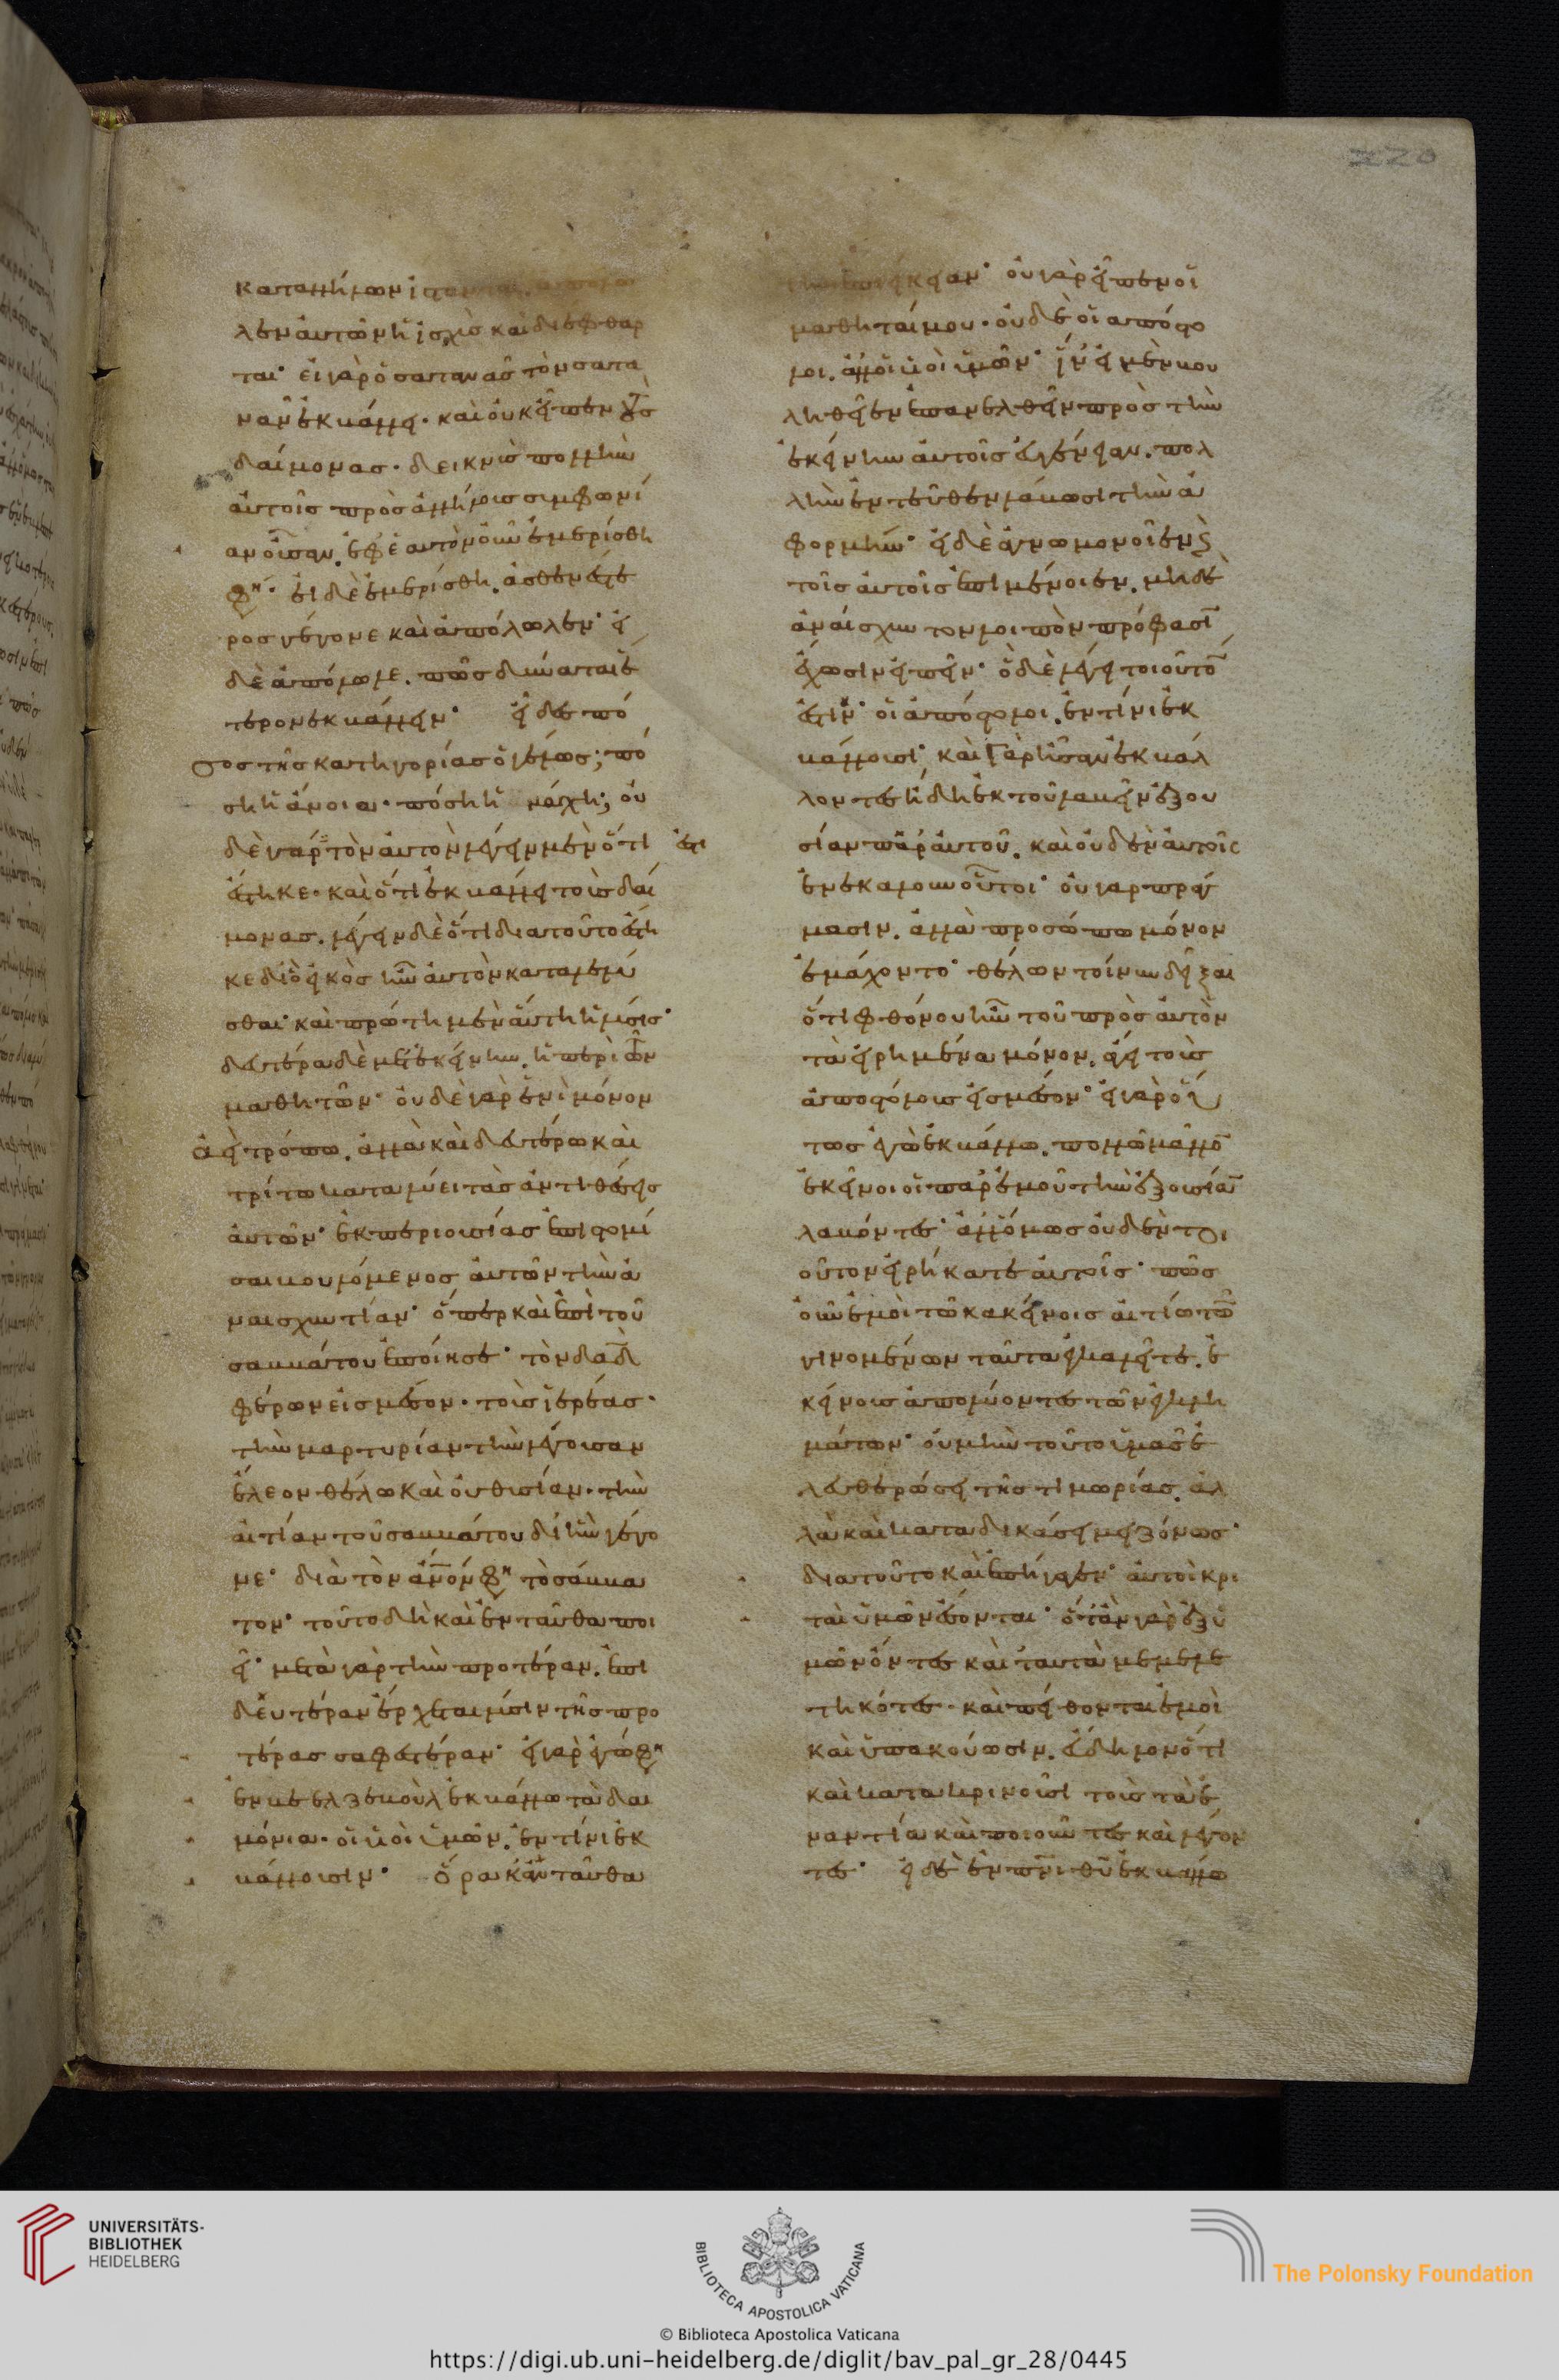 καταλλήλων ἵστανται, ἀπόλω
λεν αὐτῶν ἡ ἰσχὺς καὶ διέφθαρ
ται· εἰ γὰρ ὁ σατανᾶς τὸν σατα
νᾶν ἐκβάλλει· καὶ οὐκ εἶπεν τοὺς
δαίμονας· δεικνὺς πολλὴν
αὐτοῖς πρὸς ἀλλήλους συμφωνί
αν οὖσαν. ἐφ' ἑαυτὸν οὖν ἐμερίσθη
φη· εἰ δὲ ἐμερίσθη. ἀσθενέστε
ρος γέγονε καὶ ἀπόλωλεν· εἰ
δὲ ἀπόλωλε. πῶς δύναται ἕ
τερον ἐκβάλλειν· εἶδες πό
σος τῆς κατηγορίας ὁ γέλως; πό
ση ἡ ἄνοια· πόση ἡ μάχη; οὐ
δὲ γάρ τὸν αὐτὸν λέγειν μὲν ὅτι ἐστι
ἕστηκε· καὶ ὅτι ἐκβάλλει τοὺς δαί
μονας. λέγειν δὲ ὅτι διατοῦτο ἕστη
κε δι' ὃ εἰκὸς ἦν αὐτὸν καταλελύ
σθαι· καὶ πρώτη μὲν αὕτη ἡ λύσις·
δευτέρα δὲ μετ' ἐκείνην. ἡ περὶ τῶν
μαθητῶν· οὐδὲ γὰρ ἑνὶ μόνον
ἀεὶ τρόπω. ἀλλὰ καὶ δευτέρω καὶ
τρίτω καταλύει τὰς ἀντιθέσεις
αὐτῶν· ἐκ περιουσίας ἐπιστομί
σαι βουλόμενος αὐτῶν τὴν ἀ
ναισχυντίαν· ὅπερ καὶ ἐπὶ τοῦ
σαββάτου ἐποίησε· τὸν δαδ
φέρων εἰς μέσον· τοὺς ἱερέας·
τὴν μαρτυρίαν τὴν λέγουσαν
ἔλεον θέλω καὶ οὐ θυσίαν· τὴν
αἰτίαν τοῦ σαββάτου δι' ἣν γέγο
νε· διὰ τὸν ανον φη τὸ σάββα
τον· τοῦτο δὴ καὶ ἐνταῦθα ποι
εῖ· μετὰ γὰρ τὴν προτέραν. ἐπι
δευτέραν ἔρχεται λύσιν τῆς προ
τέρας σαφεστέραν· εἰ γὰρ ἐγώ φη
ἐν βεελζεβοὺλ ἐκβάλλω τὰ δαι
μόνια· οἱ υἱοὶ ὑμῶν. ἐν τίνι ἐκ
βάλλουσιν· ὅρα κἀνταῦθα
τὴν ἐπιείκειαν· οὐ γὰρ εἶπεν οἱ
μαθηταί μου· οὐδὲ οἱ απόστο
λοι. ἀλλ' οἱ υἱοὶ ὑμῶν· ἵν' εἰ μὲν βου
ληθεῖεν ἐπανελθεῖν πρὸς τὴν
ἐκείνων αὐτοῖς εὐγένειαν. πολ
λὴν ἐντεῦθεν λάβωσι τὴν ἀ
φορμήν· εἰ δὲ ἀγνωμονοῖεν καὶ
τοῖς αὐτοῖς ἐπιμένοιεν. μηδὲ
ἀναίσχυντον λοιπὸν πρόφασιν
ἔχωσιν εἰπεῖν· ὁ δὲ λέγει τοιοῦτον
ἐστιν· οἱ ἀπόστολοι. ἐν τίνι ἐκ
βάλλουσι· καὶ γὰρ ἦσαν ἐκβαλ
λοντες ἤδη ἐκ τοῦ λαβεῖν ἐξου
σίαν παρ' αὐτοῦ. καὶ οὐδὲν αὐτοῖς
ἐνεκάλουν οὗτοι· οὐ γαρ πράγ
μασιν. ἀλλὰ προσώπω μόνον
ἐμάχοντο· θέλων τοίνυν δεῖξαι
ὅτι φθόνου ἦν τοῦ πρὸς αὐτὸν
τὰ εἰρημένα μόνον. ἄγει τοὺς
ἀποστόλους εἰς μέσον· εἰ γὰρ οὕ
τως ἐγὼ ἐκβάλλω. πολλῶ μᾶλλον
ἐκεῖνοι οἱ παρ' ἐμοῦ τὴν ἐξουσίαν
λαβόντες· ἀλλ' ὅμως οὐδὲν τοι
οῦτον εἰρήκατε αὐτοῖς· πῶς
οὖν ἐμοὶ τῶ κακείνοις αἰτίω τῶν
γινομένων ταῦτα ἐγκαλεῖτε. ἐ
κείνους ἀπολύοντες τῶν ἐγκλη
μάτων· οὐ μὴν τοῦτο ὑμᾶς ἐ
λευθερώσει τῆς τιμωρίας. ἀλ
λὰ καὶ καταδικάσει μειζόνως·
διατοῦτο καὶ ἐπήγαγεν· αὐτοὶ κρι
ταὶ ὑμῶν ἔσονται· ὅταν γὰρ ἐξ ὑ
μῶν ὄντες καὶ ταυτὰ μεμελε
τηκότες. καὶ πείθονται ἐμοὶ
καὶ ὑπακούωσιν. εὔδηλον ὅτι
καὶ κατακρινοῦσι τοὺς τὰ ἐ
ναντία καὶ ποιοῦντας καὶ λέγον
τας· εἰ δὲ ἐν πνι θυ ἐκβάλλω
220
UNIVERSITÄTS-
BIBLIOTHEK
HEIDELBERG
BIBLIOTECA APOSTOLICA VATICANA
The Polonsky Foundation
© Biblioteca Apostolica Vaticana
https://digi.ub.uni-heidelberg.de/diglit/bav_pal_gr_28/0445